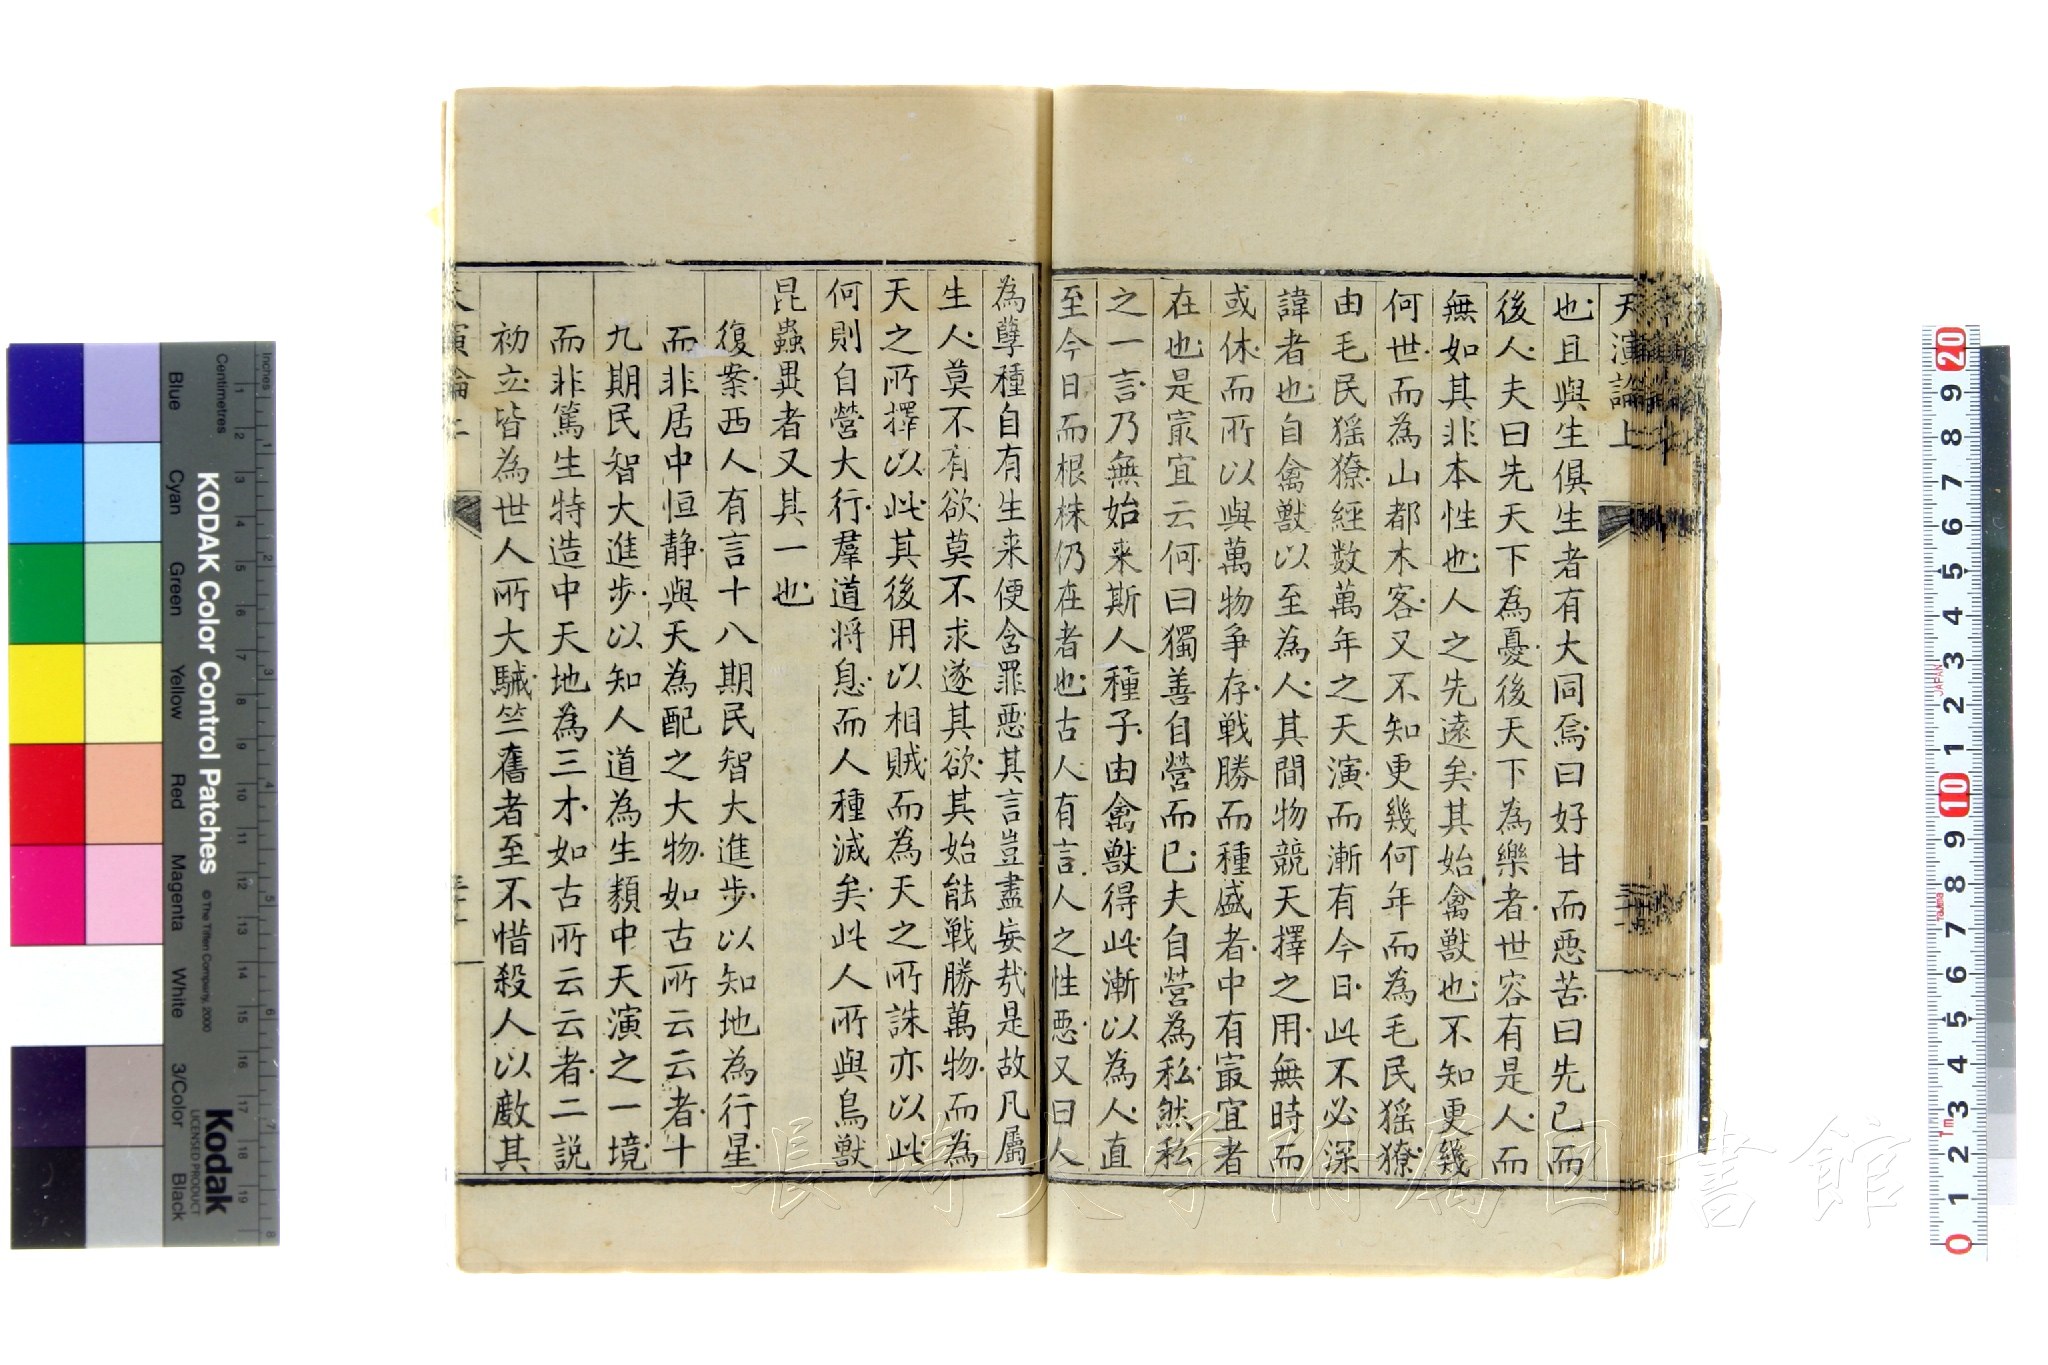 天演論上
也且與生俱生者有大同焉曰好甘而惡苦曰先己而
後人夫曰先天下為憂後天下為樂者世容有是人而
無如其非本性也人之先遠矣其始禽獸也不知更幾
何世而為山都木客又不知更幾何年而為毛民猺獠
由毛民猺獠經數萬年之天演而漸有今日此不必深
諱者也自禽獸以至為人其間物競天擇之用無時而
或休而所以與萬物爭存戰勝而種盛者中有冣宜者
在也是冣宜云何曰獨善自營而已夫自營為私然私
之一言乃無始來斯人種子由禽獸得此漸以為人直
至今日而根株仍在者也古人有言人之性惡又曰人
為孽種自有生来便含罪惡其言豈盡妄哉是故凡屬
生人莫不有欲莫不求遂其欲其始能戰勝萬物而為
天之所擇以此其後用以相賊而為天之所誅亦以此
何則自營大行羣道將息而人種滅矣此人所與鳥獸
昆蟲異者又其一也
復案西人有言十八期民智大進步以知地為行星
而非居中恒静與天為配之大物如古所云云者十
九期民智大進步以知人道為生類中天演之一境
而非篤生特造中天地為三才如古所云云者二説
初立皆為世人所大駴竺舊者至不惜殺人以敵其
長崎大学附属図書館
KODAK Color Control Patches
© The Tiffen Company, 2000
Kodak
LICENSED PRODUCT
Inches
Centimetres
Blue
Cyan
Green
Yellow
Red
Magenta
White
3/Color
Black
JAPAN